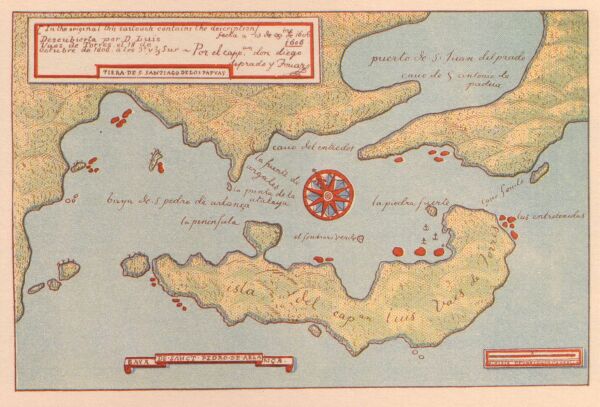 [In the original this cartouch contains the description]
Descubierta por D. Luis
Vaes de Torres el 18 de
octubre de 1606
Sur - Por el capp.an don diego
de prado y
1606
TIERRA DE S. SANTIAGO DE LOS PAPUAS
puerto de S Juan del prado
cauo de S antonio de
padua
cauo del entredos
la fuente de
angeles
la punta de la
atalaya
baya de S. pedro de arlança
la peninsula
la piedra fuerte
el sombrero verde
cauo hondo
las entretenidas
isla del cap an luis Vaes de Torres
BAYA DE SANCT PEDRO DE ARLANÇA